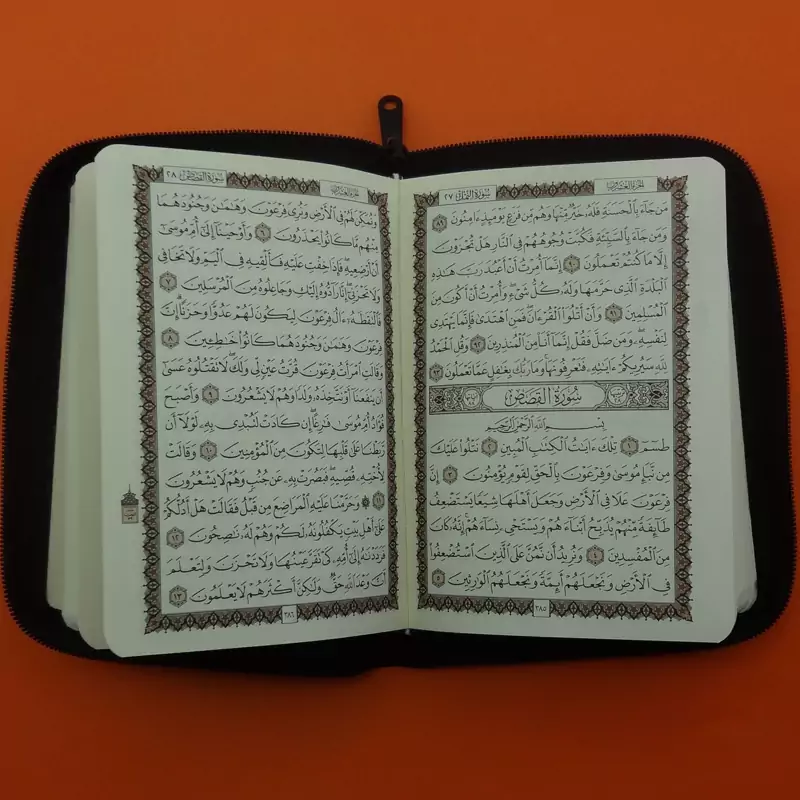 الجزء العشرون سورة النمل ٢٧
مَن جَآءَ بِٱلْحَسَنَةِ فَلَهُۥ خَيْرٌ مِّنْهَا وَهُم مِّن فَزَعٍ يَوْمَئِذٍ ءَامِنُونَ ٨٩
وَمَن جَآءَ بِٱلسَّيِّئَةِ فَكُبَّتْ وُجُوهُهُمْ فِى ٱلنَّارِ هَلْ تُجْزَوْنَ
إِلَّا مَا كُنتُمْ تَعْمَلُونَ ٩٠ إِنَّمَآ أُمِرْتُ أَنْ أَعْبُدَ رَبَّ هَٰذِهِ
ٱلْبَلْدَةِ ٱلَّذِى حَرَّمَهَا وَلَهُۥ كُلُّ شَىْءٍ ۖ وَأُمِرْتُ أَنْ أَكُونَ مِنَ
ٱلْمُسْلِمِينَ ٩١ وَأَنْ أَتْلُوَا۟ ٱلْقُرْءَانَ ۖ فَمَنِ ٱهْتَدَىٰ فَإِنَّمَا يَهْتَدِى
لِنَفْسِهِۦ ۖ وَمَن ضَلَّ فَقُلْ إِنَّمَآ أَنَا۠ مِنَ ٱلْمُنذِرِينَ ٩٢ وَقُلِ ٱلْحَمْدُ
لِلَّهِ سَيُرِيكُمْ ءَايَٰتِهِۦ فَتَعْرِفُونَهَا ۚ وَمَا رَبُّكَ بِغَٰفِلٍ عَمَّا تَعْمَلُونَ ٩٣
سُورَةُ القَصَصِ
بِسْمِ ٱللَّهِ ٱلرَّحْمَٰنِ ٱلرَّحِيمِ
طسٓمٓ ١ تِلْكَ ءَايَٰتُ ٱلْكِتَٰبِ ٱلْمُبِينِ ٢ نَتْلُوا۟ عَلَيْكَ
مِن نَّبَإِ مُوسَىٰ وَفِرْعَوْنَ بِٱلْحَقِّ لِقَوْمٍ يُؤْمِنُونَ ٣ إِنَّ
فِرْعَوْنَ عَلَا فِى ٱلْأَرْضِ وَجَعَلَ أَهْلَهَا شِيَعًا يَسْتَضْعِفُ
طَآئِفَةً مِّنْهُمْ يُذَبِّحُ أَبْنَآءَهُمْ وَيَسْتَحْىِۦ نِسَآءَهُمْ ۚ إِنَّهُۥ كَانَ
مِنَ ٱلْمُفْسِدِينَ ٤ وَنُرِيدُ أَن نَّمُنَّ عَلَى ٱلَّذِينَ ٱسْتُضْعِفُوا۟
فِى ٱلْأَرْضِ وَنَجْعَلَهُمْ أَئِمَّةً وَنَجْعَلَهُمُ ٱلْوَٰرِثِينَ ٥
٣٨٥
الجزء العشرون سورة القصص ٢٨
وَنُمَكِّنَ لَهُمْ فِى ٱلْأَرْضِ وَنُرِىَ فِرْعَوْنَ وَهَٰمَٰنَ وَجُنُودَهُمَا
مِنْهُم مَّا كَانُوا۟ يَحْذَرُونَ ٦ وَأَوْحَيْنَآ إِلَىٰٓ أُمِّ مُوسَىٰٓ
أَنْ أَرْضِعِيهِ ۖ فَإِذَا خِفْتِ عَلَيْهِ فَأَلْقِيهِ فِى ٱلْيَمِّ وَلَا تَخَافِى
وَلَا تَحْزَنِىٓ ۖ إِنَّا رَآدُّوهُ إِلَيْكِ وَجَاعِلُوهُ مِنَ ٱلْمُرْسَلِينَ ٧
فَٱلْتَقَطَهُۥٓ ءَالُ فِرْعَوْنَ لِيَكُونَ لَهُمْ عَدُوًّا وَحَزَنًا ۗ إِنَّ
فِرْعَوْنَ وَهَٰمَٰنَ وَجُنُودَهُمَا كَانُوا۟ خَٰطِـِٔينَ ٨
وَقَالَتِ ٱمْرَأَتُ فِرْعَوْنَ قُرَّتُ عَيْنٍ لِّى وَلَكَ ۖ لَا تَقْتُلُوهُ عَسَىٰٓ
أَن يَنفَعَنَآ أَوْ نَتَّخِذَهُۥ وَلَدًا وَهُمْ لَا يَشْعُرُونَ ٩ وَأَصْبَحَ
فُؤَادُ أُمِّ مُوسَىٰ فَٰرِغًا ۖ إِن كَادَتْ لَتُبْدِى بِهِۦ لَوْلَآ أَن
رَّبَطْنَا عَلَىٰ قَلْبِهَا لِتَكُونَ مِنَ ٱلْمُؤْمِنِينَ ١٠ وَقَالَتْ
لِأُخْتِهِۦ قُصِّيهِ ۖ فَبَصُرَتْ بِهِۦ عَن جُنُبٍ وَهُمْ لَا يَشْعُرُونَ
١١ ۞ وَحَرَّمْنَا عَلَيْهِ ٱلْمَرَاضِعَ مِن قَبْلُ فَقَالَتْ هَلْ أَدُلُّكُمْ
عَلَىٰٓ أَهْلِ بَيْتٍ يَكْفُلُونَهُۥ لَكُمْ وَهُمْ لَهُۥ نَٰصِحُونَ ١٢
فَرَدَدْنَٰهُ إِلَىٰٓ أُمِّهِۦ كَىْ تَقَرَّ عَيْنُهَا وَلَا تَحْزَنَ وَلِتَعْلَمَ
أَنَّ وَعْدَ ٱللَّهِ حَقٌّ وَلَٰكِنَّ أَكْثَرَهُمْ لَا يَعْلَمُونَ ١٣
٣٨٦